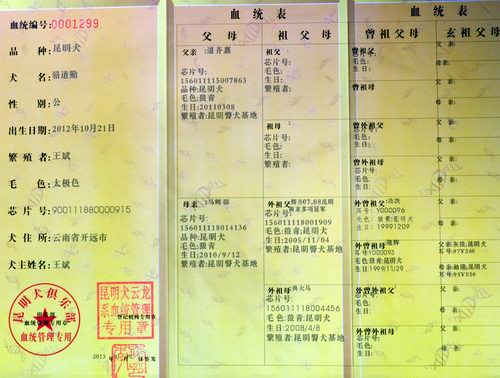 血统编号:0001299
品 种 昆明犬
犬 名 骆道勤
性 别 公
出生日期 2012年10月21日
繁殖者 王斌
毛 色 太极色
芯片号 900111880000915
犬住所 云南省开远市
犬主姓名 王斌
昆明犬俱乐部
血统管理专用章
血统管理专用
昆明犬云龙
系血统管理
专用章
登记机构专用章
2013
血统表
父母
祖父母
父亲:道齐嘉
芯片号:
156011115007863
品种:昆明犬
毛色:狼青
生日:20110308
繁殖者:昆明警犬基地
母亲:
芯片号:
156011118014136
品种:昆明犬
毛色:狼青
生日:2010/9/12
繁殖者:昆明警犬基地
祖父:
芯片号:
毛色:
生日:
繁殖者:
祖母:
芯片号:
毛色:
生日:
繁殖者:
外祖父:
芯片号:
156011118001909
毛色:昆明犬
生日:2005/11/04
繁殖者:昆明警犬基地
外祖母:
芯片号:
156011118004456
毛色:
生日:2008/4/8
繁殖者:昆明警犬基地
血统表
曾祖父母
玄祖父母
曾祖父:
芯片号:
毛色:
生日:
曾祖母:
芯片号:
毛色:
生日:
曾外祖父:
芯片号:
毛色:
生日:
曾外祖母:
芯片号:
毛色:
生日:
外曾祖父:
耳号:Y000096
毛色:狼青;昆明犬
生日:19991209
外曾祖母:
耳号:Y000093
毛色:狼青;昆明犬
生日:1998/11/29
外曾外祖父:
芯片号:
毛色:
生日:
外曾外祖母:
芯片号:
毛色:
生日:
父亲:
母亲:
父亲:
母亲:
父亲:
母亲:
父亲:
母亲:
父亲:
母亲:
耳号:97Y260
耳号:95Y056
父亲:
母亲:
父亲:
母亲: